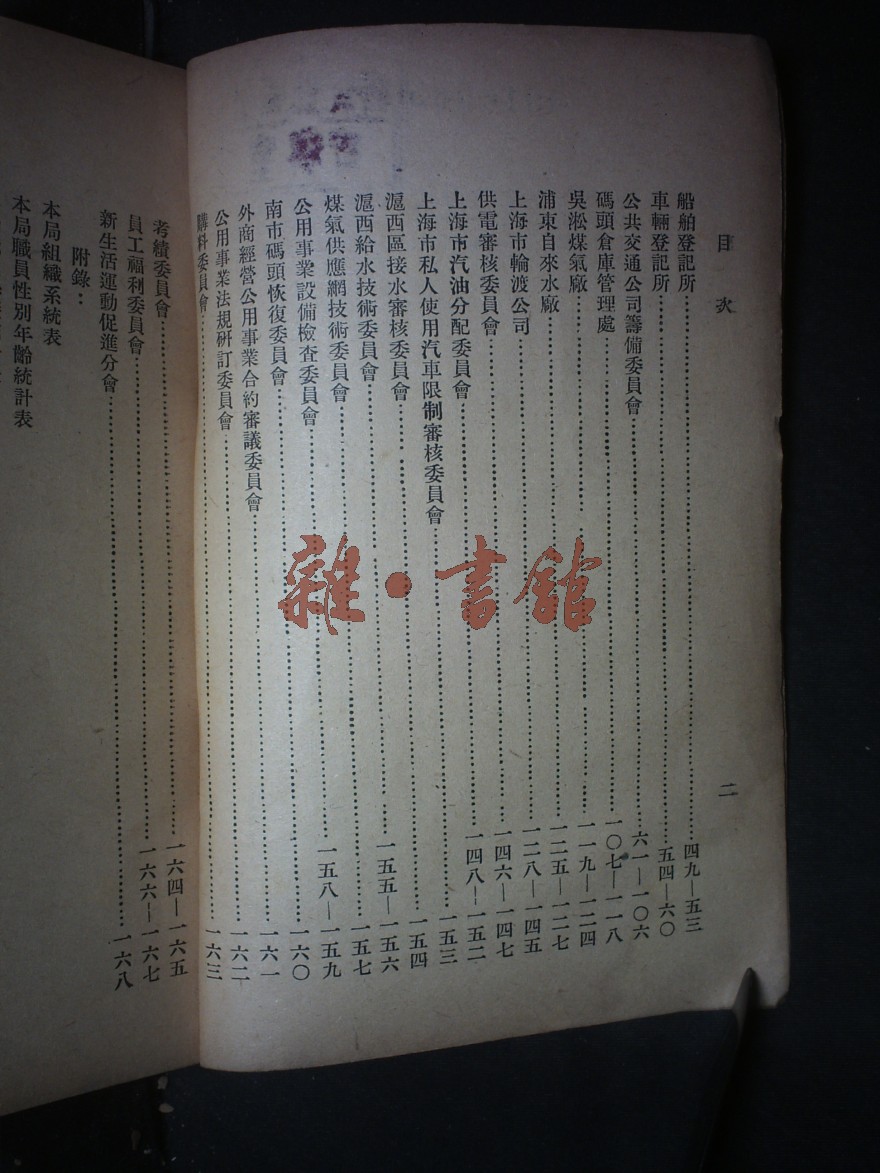 目次 二
船舶登記所……四九—五三
車輛登記所……五四—六〇
公共交通公司籌備委員會……六一—一〇六
碼頭倉庫管理處……一〇七—一一八
吳淞煤氣廠……一一九—一二四
浦東自來水廠……一二五—一二七
上海市輪渡公司……一二八—一四五
供電審核委員會……一四六—一四七
上海市汽油分配委員會……一四八—一五二
上海市私人使用汽車限制審核委員會……一五三
滬西區接水審核委員會……一五四
滬西給水技術委員會……一五五—一五六
煤氣供應網技術委員會……一五七
公用事業設備檢查委員會……一五八—一五九
南市碼頭恢復委員會……一六〇
外商經營公用事業合約審議委員會……一六一
公用事業法規研訂委員會……一六二
購料委員會……一六三
考績委員會……一六四—一六五
員工福利委員會……一六六—一六七
新生活運動促進分會……一六八
附錄：
本局組織系統表
本局職員性別年齡統計表
雜·書館